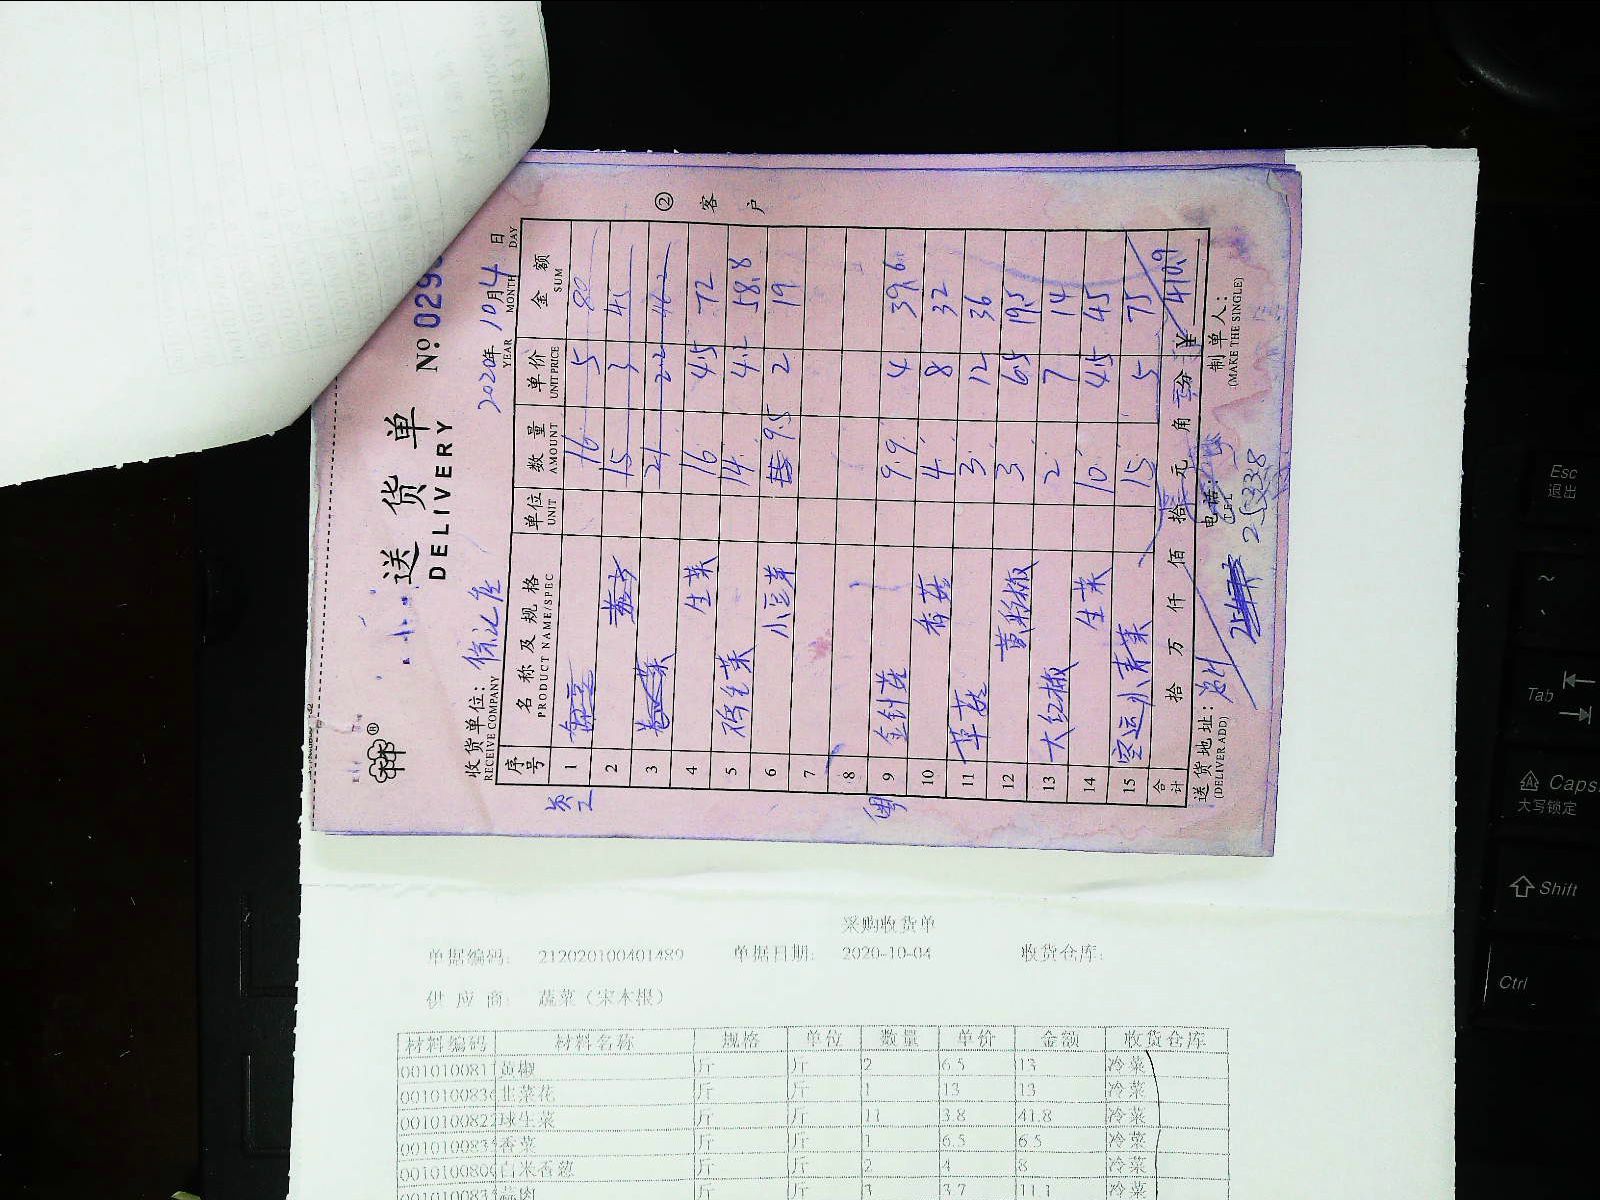 送货单
DELIVERY
№ 029
2020年 10月 4 日
YEAR MONTH DAY
收货单位:
RECEIVE COMPANY
② 客户
序号 名称及规格 单位 数量 单价 金额
PRODUCT NAME/SPEC UNIT AMOUNT UNIT PRICE SUM
1 16 5 80
2 15 3 45
3 21 2.2 46.2
4 生菜 16 4.5 72
5 14 4.2 58.8
6 小豆芽 9.5 2 19
7
8
粤
9 金针菇 9.9 4 39.6
10 香菇 4 8 32
11 草菇 3 12 36
12 黄彩椒 3 6.5 19.5
13 大红椒 2 7 14
14 生菜 10 4.5 45
15 空运小青菜 15 5 75
合计 拾 万 仟 佰 拾 元 角 分 ¥ 410.9
送货地址: 电话: 制单人:
(DELIVER ADD) TEL (MAKE THE SINGLE)
采购收货单
单据编码: 212020100401489 单据日期: 2020-10-04 收货仓库:
供应商: 蔬菜（宋本根）
材料编码 材料名称 规格 单位 数量 单价 金额 收货仓库
0010100811 黄椒 斤 斤 2 6.5 13 冷菜
001010083 韭菜花 斤 斤 1 13 13 冷菜
001010082 球生菜 斤 斤 11 3.8 41.8 冷菜
001010083 香菜 斤 斤 1 6.5 6.5 冷菜
001010080 白米香葱 斤 斤 2 4 8 冷菜
001010083 蒜肉 斤 斤 3 3.7 11.1 冷菜
Esc
退出
~
Tab
Caps
大写锁定
Shift
Ctrl